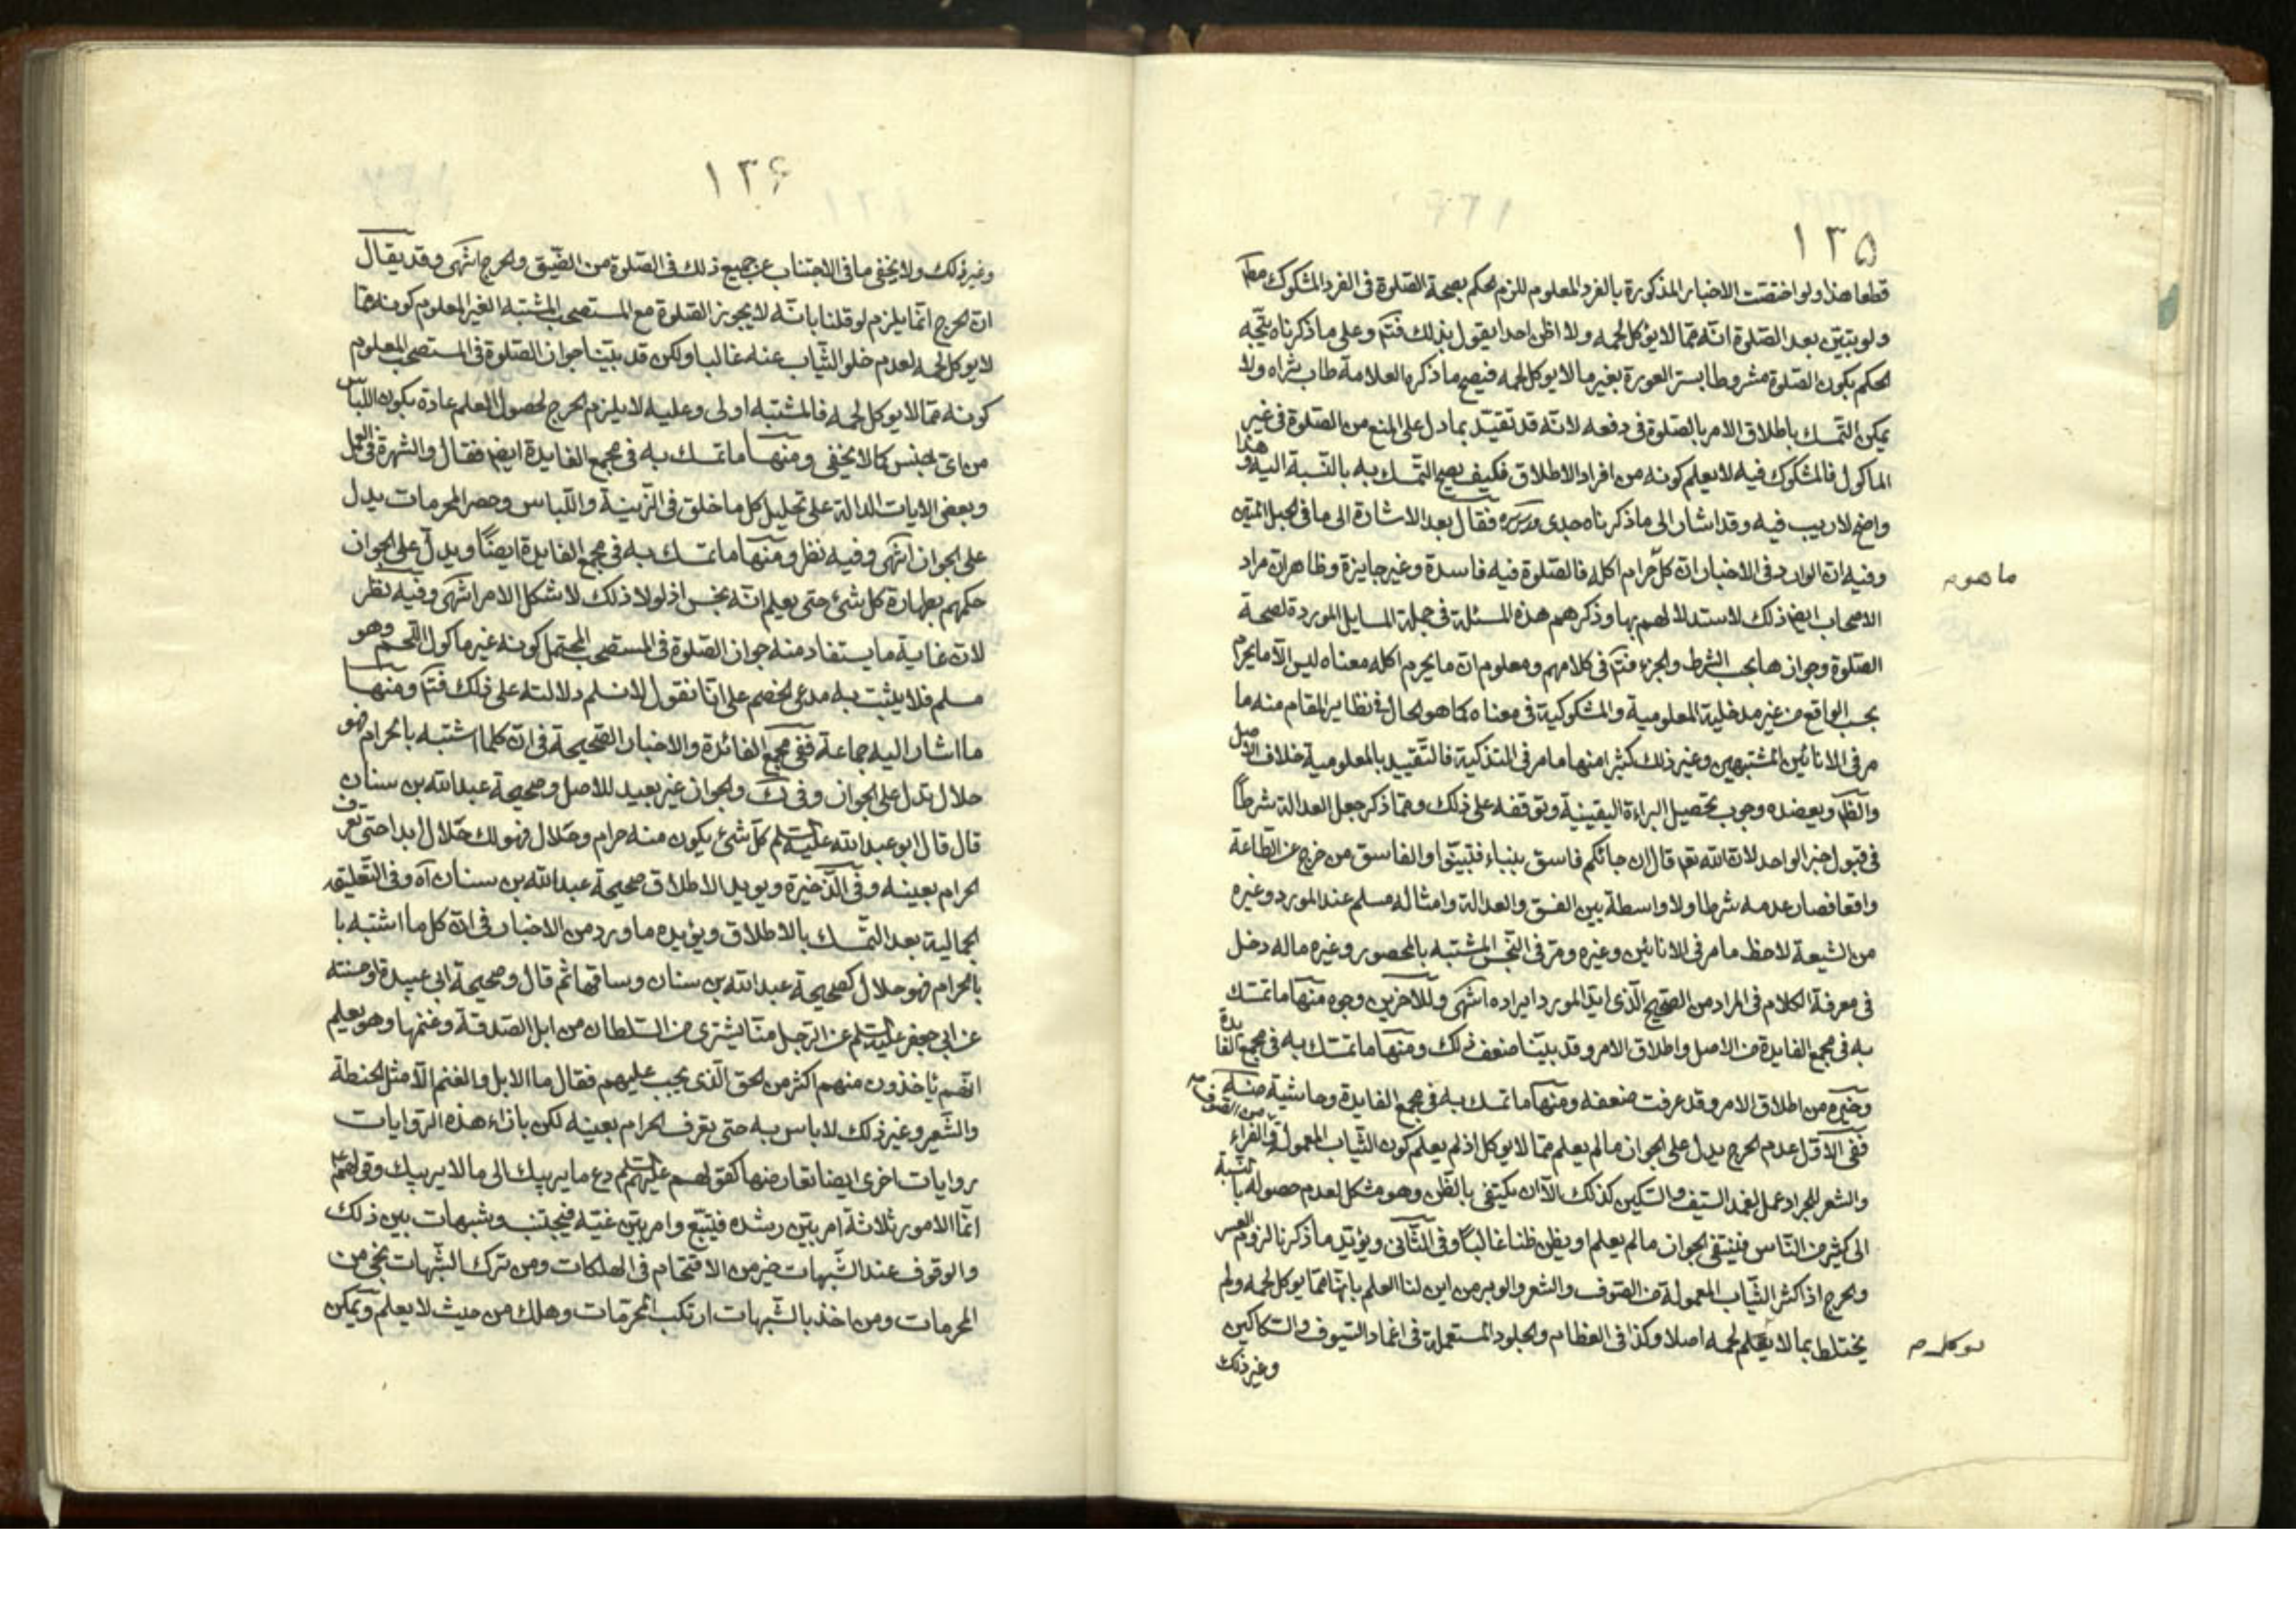 ١٣٥
قطعا هذا ولو اختصّت الاخبار المذكورة بالفرد المعلوم للزم الحكم بصحة الصّلوة فى الفرد المشكوك مطلقا
ولو يتبيّن بعد الصّلوة انّه ممّا لا يؤكل لحمه ولا اظن احدا يقول بذلك فتمّ وعلى ما ذكرناه يتّجه
الحكم بكون الصّلوة مشروطا بستر العورة بغير ما لا يوكل لحمه فيصح ما ذكره العلامة طاب ثراه ولا
يمكن التّمسك باطلاق الامر بالصّلوة فى دفعه لانّه قد تقيّد بما دل على المنع من الصّلوة فى غير
الماكول فالمشكوك فيه لا يعلم كونه من افراد الاطلاق فكيف يصح التمسك به بالنّسبة اليه وهذا
واضح لا ريب فيه وقد اشار الى ما ذكرناه جدى قدس سره فقال بعد الاشارة الى ما فى الحبل المتين
وفيه انّ الوارد فى الاخبار انّ كلّ حرام اكله فالصّلوة فيه فاسدة وغير جايزة وظاهر انّ مراد
ما هو م
الاصحاب ايضا ذلك لاستدلالهم بها وذكرهم هذه المسئلة فى جملة المسايل الموردة لصحة
الصّلوة وجوازها بحسب الشرط والجزء فتمّ فى كلامهم ومعلوم انّ ما يحرم اكله معناه ليس الّا ما يحرم
بحسب الواقع من غير مدخلية المعلومية والمشكوكية فى معناه كما هو الحال فى نظاير المقام منه ما
مر فى الانائين المشتبهين وغير ذلك كثيرا منها ما مر فى التذكية فالتّقييد بالمعلومية خلاف الاصل
والظّم ويعضده وجوب تحصيل البراءة اليقينية وتوقفه على ذلك وممّا ذكر جعل العدالة شرطاً
فى قبول خبر الواحد لانّ الله تعم قال ان جائكم فاسق بنباء فتبيّنوا والفاسق من خرج عن الطّاعة
واقعا فصار عدمه شرطا ولا واسطة بين الفسق والعدالة وامثاله مسلم عند المورد وغيره
من الشيعة لاحظ ما مر فى الانائين وغيره ومرّ فى النّجس المشتبه بالمحصور وغيره ماله دخل
فى معرفة الكلام فى المراد من الصّحيح الّذى ايّد المورد ايراده انتهى وللآخرين وجوه منها ما تمسّك
به فى مجمع الفايدة من الاصل واطلاق الامر وقد بيّنا ضعف ذلك ومنها ما تمسّك به فى مجمع الفايدة
وغيره من اطلاق الامر وقد عرفت ضعفه ومنها ما تمسك به فى مجمع الفايدة وحاشية منه
ففى الاوّل عدم الحرج يدل على الجواز ما لم يعلم ممّا لا يوكل اذ لم يعلم كون الثّياب المعمولة من الصّوف فى الفراء
والشعر للجراد عمل لغمد السّيف والسكين كذلك الّا ان يكتفى بالظّن وهو مشكل لعدم حصوله بالنّسبة
الى كثير من النّاس فينبغى الجواز ما لم يعلم او يظن ظنا غالباً وفى الثّانى ويؤيّد ما ذكرنا لزوم العسر
والحرج اذ اكثر الثّياب المعمولة من الصّوف والشعر والوبر من اين لنا العلم بانّها ممّا يوكل لحمه ولم
يختلط بما لا يعلم لحمه اصلا وكذا فى العظام والجلود المستعملة فى اغماد السّيوف والسّكاكين
يوكل م
وغير ذلك
١٣۶
وغير ذلك ولا يخفى ما فى الاجتناب عن جميع ذلك فى الصّلوة من الضّيق والحرج انتهى وقد يقال
انّ الحرج انّما يلزم لو قلنا بانّه لا يجوز الصّلوة مع المستصحب المشتبه الغير المعلوم كونه ممّا
لا يوكل لحمه لعدم خلو الثّياب عنه غالبا ولكن قد بيّنا جواز الصّلوة فى المستصحب المعلوم
كونه ممّا لا يوكل لحمه فالمشتبه اولى وعليه لا يلزم الحرج لحصول العلم عادة بكون اللّباس
من اىّ الجنس كما لا يخفى ومنها ما تمسك به فى مجمع الفايدة ايضا فقال والشهرة فى العمل
وبعض الايات الدالة على تحليل كل ما خلق فى الزّينة واللّباس وحصر المحرمات يدل
على الجواز انتهى وفيه نظر ومنها ما تمسك به فى مجمع الفايدة ايضاً ويدلّ على الجواز
حكمهم بطهارة كل شئ حتى يعلم انّه نجس اذ لولا ذلك لاشكل الامر انتهى وفيه نظر
لانّ غاية ما يستفاد منه جواز الصّلوة فى المستصحب المحتمل كونه غير ماكول اللّحم وهو
مسلم فلا يثبت به مدعى الخصم على انّا نقول لا نسلم دلالته على ذلك فتمّ ومنها
ما اشار اليه جماعة ففى مجمع الفائدة والاخبار الصّحيحة فى انّ كلما اشتبه بالحرام فهو
حلال تدل على الجواز وفى ك والجواز غير بعيد للاصل وصحيحة عبدالله بن سنان
قال قال ابو عبدالله عليه السّلم كلّ شئ يكون منه حرام وحلال فهو لك حلال ابدا حتى تعرف
الحرام بعينه وفى الذّخيرة ويويد الاطلاق صحيحة عبدالله بن سنان آه وفى التّعليقة
الجمالية بعد التمّسك بالاطلاق ويؤيده ما ورد من الاخبار فى انّ كل ما اشتبه با
بالحرام فهو حلال كصحيحة عبدالله بن سنان وساقها ثم قال وصحيحة ابى عبيدة او حسنته
عن ابى جعفر عليه السّلم عن الرّجل منّا يشترى من السّلطان من ابل الصّدقة وغنمها وهو يعلم
انّهم ياخذون منهم اكثر من الحق الّذى يجب عليهم فقال ما الابل والغنم الّا مثل الحنطة
والشّعير وغير ذلك لا باس به حتى تعرف الحرام بعينه لكن باذاء هذه الرّوايات
روايات اخرى ايضا تعارضها كقولهم عليهم السّلم دع ما يريبك الى ما لا يريبك وقولهم
انّما الامور ثلاثة امر بيّن رشده فيتّبع وامر بيّن غيّه فيجتنب وشبهات بين ذلك
والوقوف عند الشّبهات خير من الاقتحام فى الهلكات ومن ترك الشّبهات نجى من
المحرمات ومن اخذ بالشّبهات ارتكب المحرّمات وهلك من حيث لا يعلم ويمكن